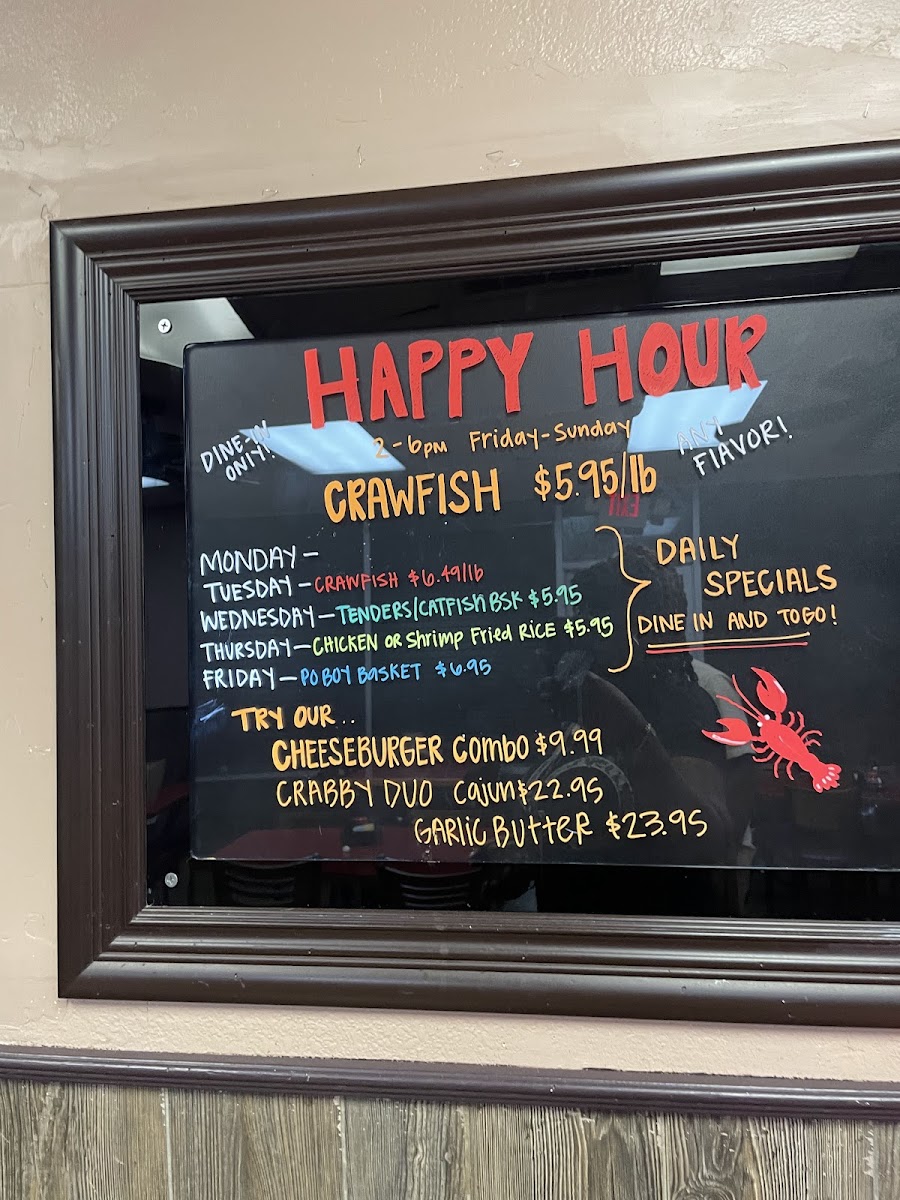 HAPPY HOUR
DINE-IN
ONLY!
2-6pm Friday-Sunday
ANY
FLAVOR!
CRAWFISH $5.95/lb
MONDAY-
TUESDAY-CRAWFISH $6.49/lb
WEDNESDAY-TENDERS/CATFISH BSK $5.95
THURSDAY-CHICKEN OR Shrimp Fried RICE $5.95
FRIDAY-PO BOY BASKET $6.95
DAILY
SPECIALS
DINE IN AND TO GO!
TRY OUR..
CHEESEBURGER Combo $9.99
CRABBY DUO Cajun $22.95
GARLIC BUTTER $23.95
EXIT